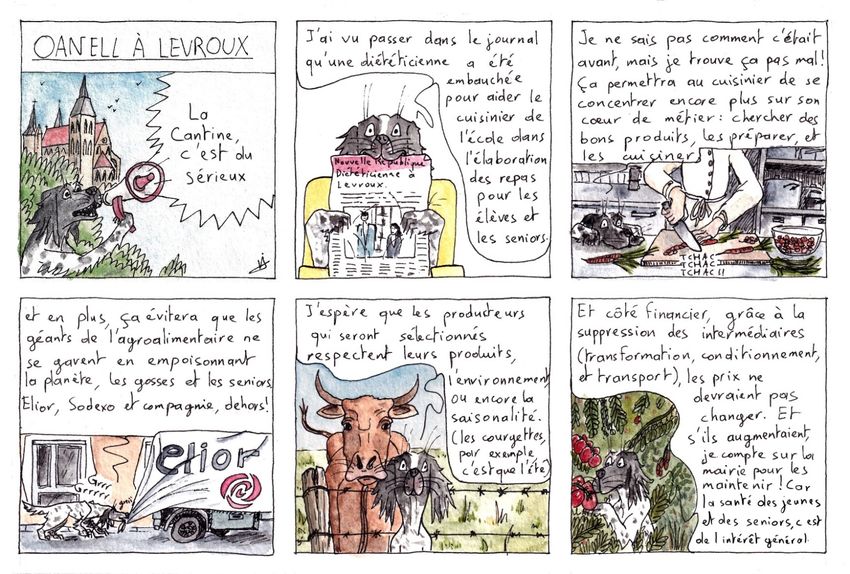 OANELL À LEVROUX
La
Cantine,
c'est du
sérieux
J'ai vu passer dans le journal
qu'une diététicienne a été
embauchée
pour aider le
cuisinier de
l'école dans
l'élaboration
des repas
pour les
élèves et
les seniors.
Nouvelle République
Diététicienne à
Levroux.
Je ne sais pas comment c'était
avant, mais je trouve ça pas mal!
Ça permettra au cuisinier de se
concentrer encore plus sur son
cœur de métier: chercher des
bons produits, les préparer, et
les cuisiner.
TCHAC
TCHAC
TCHAC!!
et en plus, ça évitera que les
géants de l'agroalimentaire ne
se gavent en empoisonnant
la planète, les gosses et les seniors
Elior, Sodexo et compagnie, dehors!
Grrr
Grrrrr
grrr
elior
J'espère que les producteurs
qui seront sélectionnés
respectent leurs produits,
l'environnement
ou encore la
saisonalité.
(les courgettes,
par exemple,
c'est que l'été)
Et côté financier, grâce à la
suppression des intermédiaires
(transformation, conditionnement,
et transport), les prix ne
devraient pas
changer. Et
s'ils augmentaient,
je compte sur la
mairie pour les
maintenir! Car
la santé des jeunes
et des seniors, c'est
de l'intérêt général.